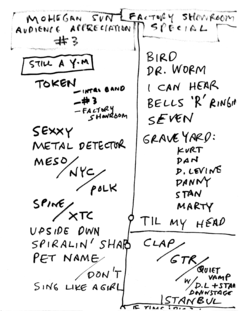 MOHEGAN SUN
AUDIENCE APPRECIATION
#3
FACTORY SHOWROOM
SPECIAL
STILL A Y.M
TOKEN
- INTRO BAND
- #3
- FACTORY
SHOWROOM
SEXXY
METAL DETECTOR
MESO/
NYC/
POLK
SPINE/
XTC
UPSIDE DWN
SPIRALIN' SHAP
PET NAME/
DON'T
SING LIKE A GIRL
BIRD
DR. WORM
I CAN HEAR
BELLS 'R' RINGIN
SEVEN
GRAVEYARD:
KURT
DAN
D. LEVINE
DANNY
STAN
MARTY
TIL MY HEAD
CLAP/
GTR/
QUIET
VAMP
W/ D.L + STAN
DOWNSTAGE
ISTANBUL